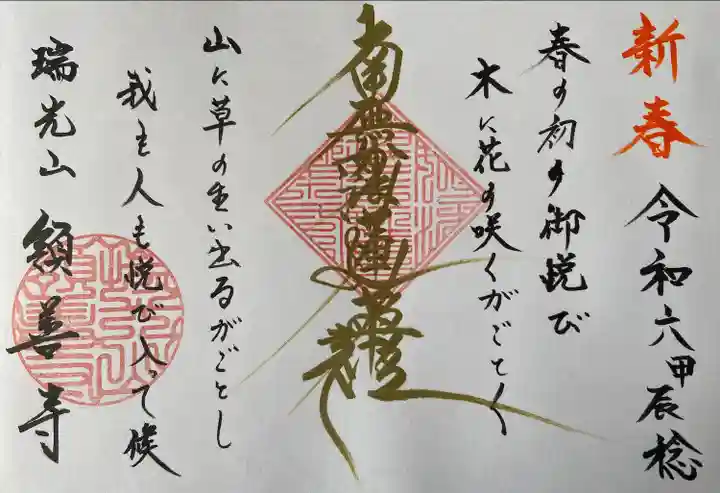 新春
令和六甲辰稔
春の初の御悦び
木に花の咲くがごとく
南無妙法蓮華経
山に草の生い出るがごとし
我も人も悦び入って候
瑞光山 額善寺